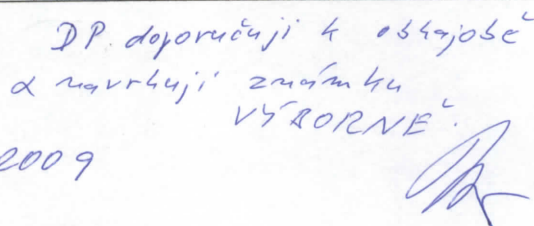 DP. doporučuji k obhajobě
a navrhuji známku
VÝBORNĚ.
2009